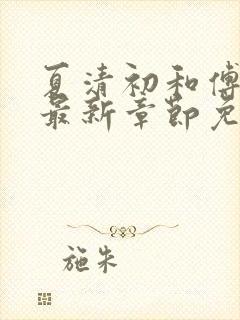 夏清初和傅
最新章节免
施朱